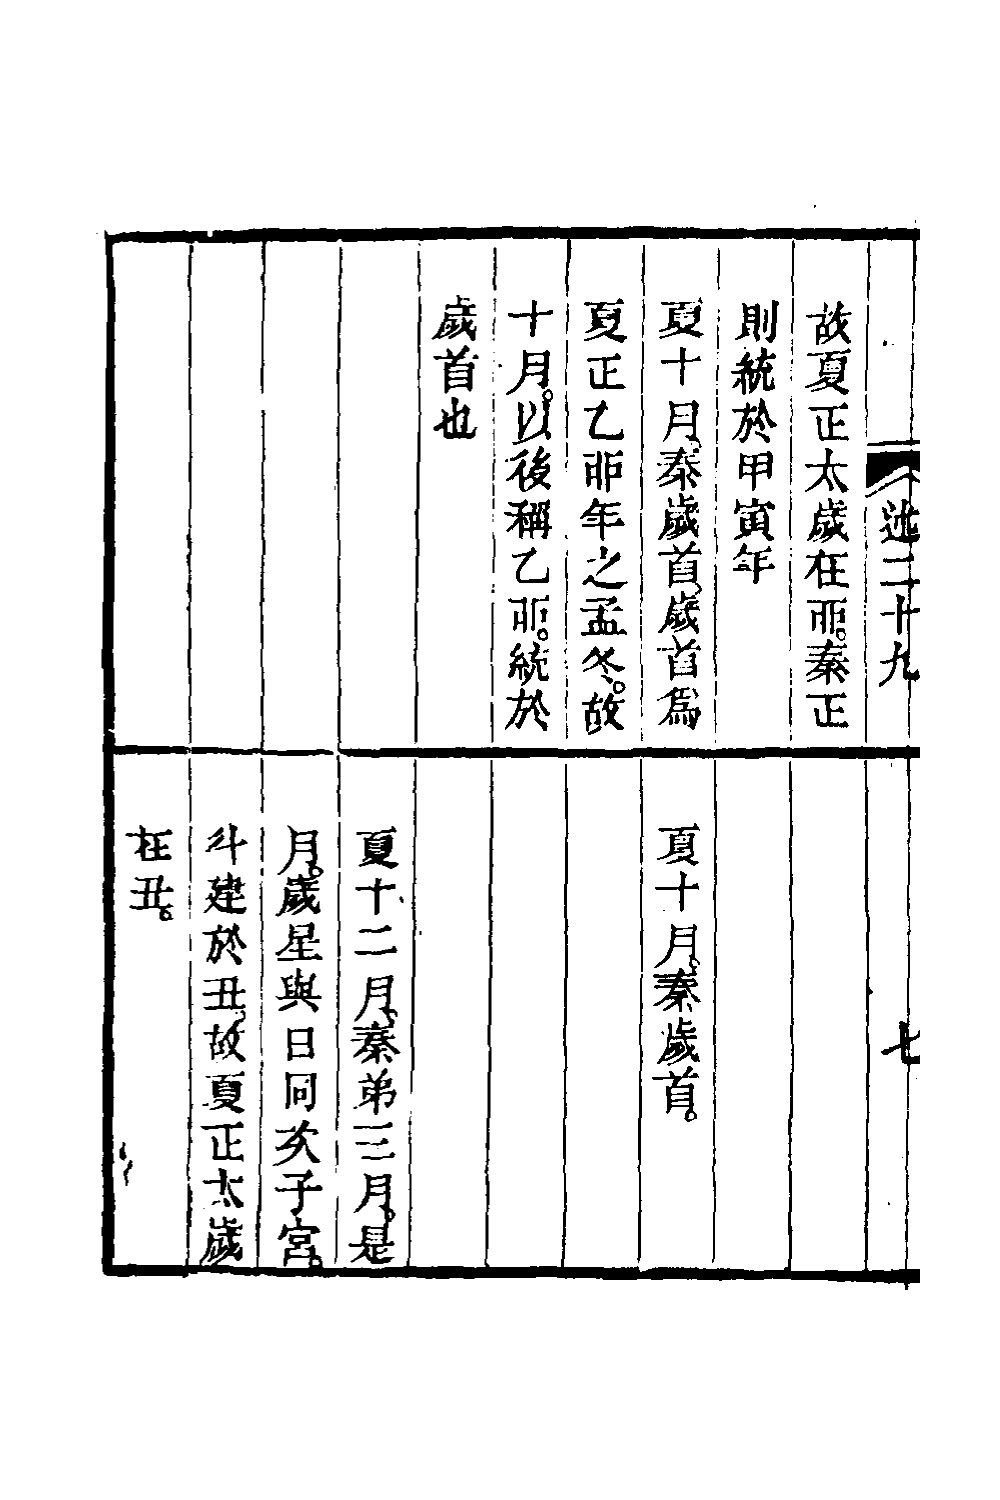 述二十九
七
故夏正太歲在丣。秦正
則統於甲寅年
夏十月、秦歲首、歲首爲
夏正乙丣年之孟冬。故
十月。以後稱乙丣。統於
歲首也
夏十月。秦歲首。
夏十二月。秦弟三月。是
月。歲星與日同次子宮。
斗建於丑、故夏正太歲
在丑。